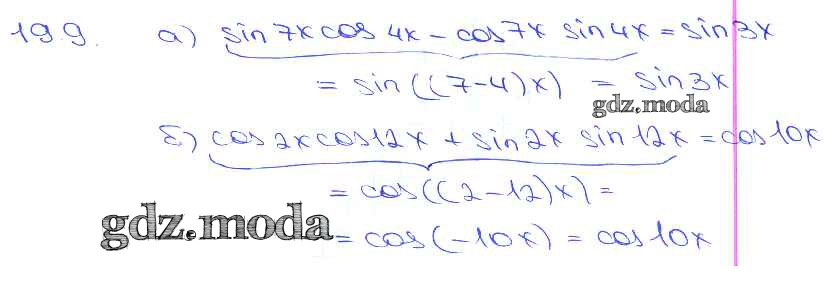 199. а) sin 7x cos 4x - cos 7x sin 4x = sin 3x
= sin((7-4)x) = sin 3x
gdz.moda
б) cos 2x cos 12x + sin 2x sin 12x = cos 10x
= cos((2-12)x) =
gdz.moda = cos(-10x) = cos 10x